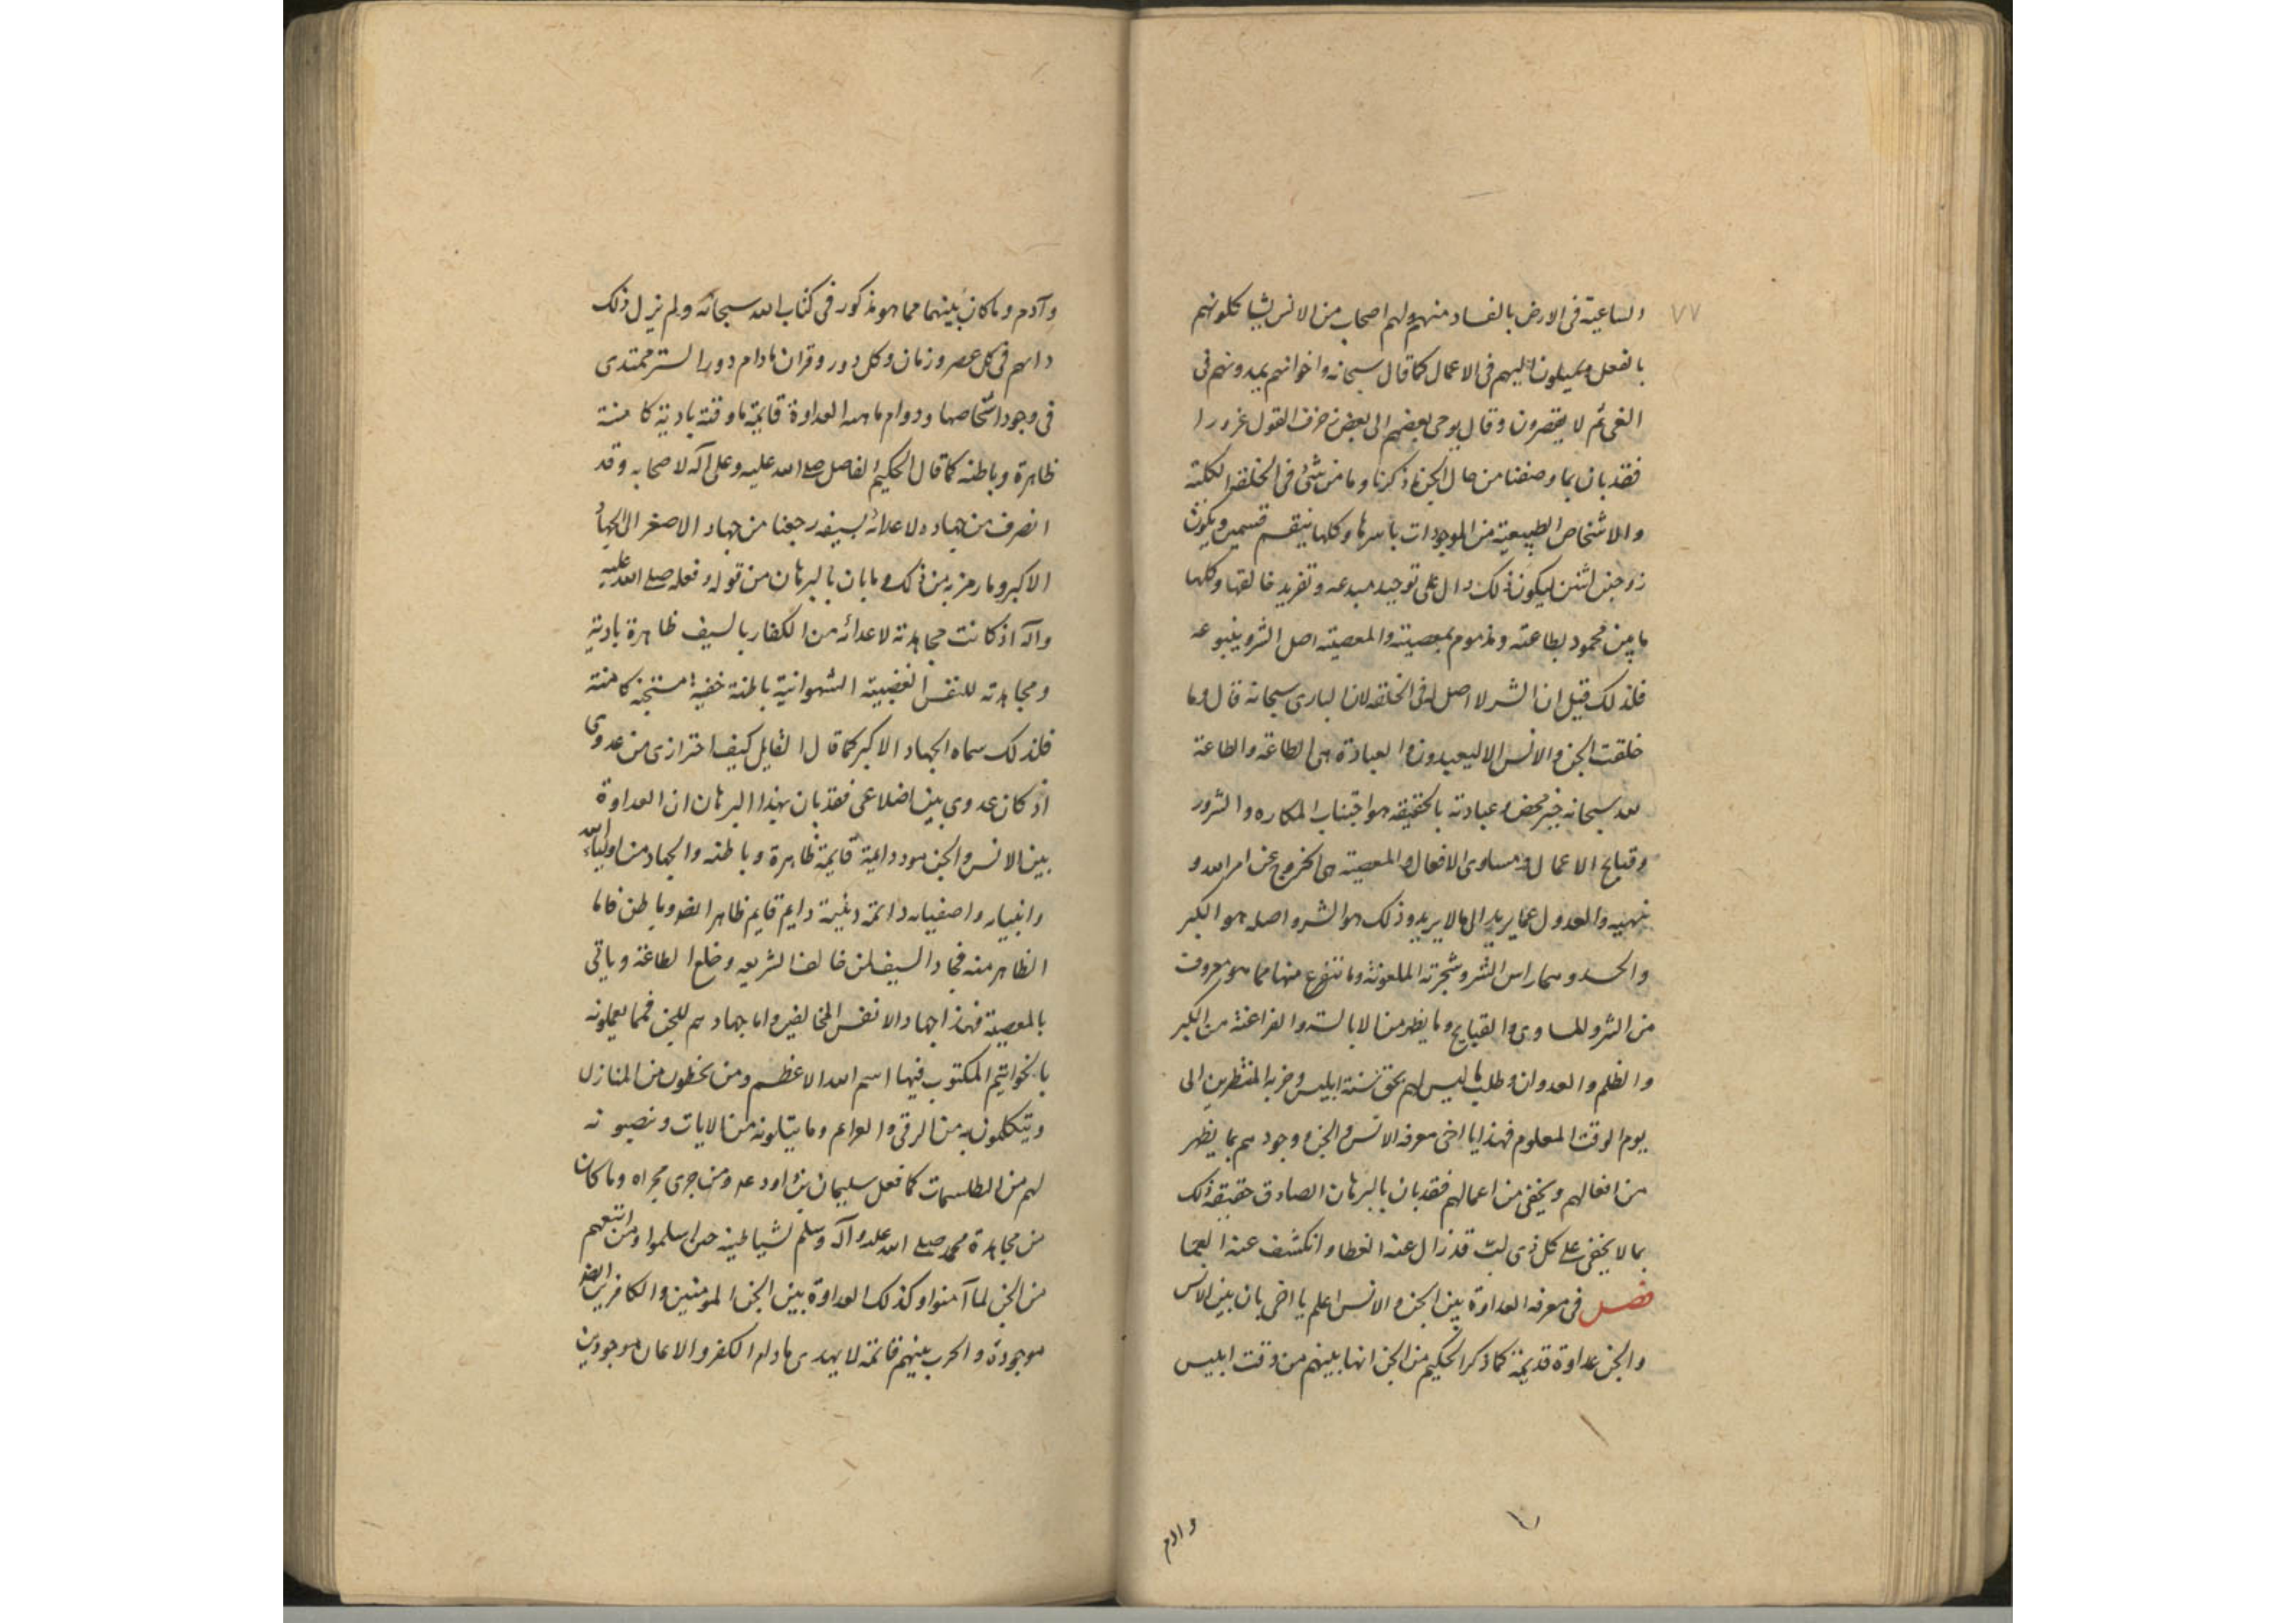 ٧٧
والساعية فى الارض بالفساد منهم ولهم اصحاب من الانس يشاكلونهم
بالفعل ويميلون اليهم فى الاعمال كما قال سبحانه واخوانهم يمدونهم فى
الغى ثم لا يقصرون وقال يوحى بعضهم الى بعض زخرف القول غرورا
فقد بان بما وصفنا من حال الجن ما ذكرنا وما من شئ فى الخلقة الكلية
والاشخاص الطبيعية من الموجودات باسرها وكلها ينقسم قسمين ويكون
زوجين اثنين ليكون ذلك دال على توحيد مبدعه وتفريد خالقها وكلها
ما بين محمود بطاعته ومذموم بمعصيته والمعصية اصل الشر وينبوعه
فلذلك قيل ان الشر لا اصل له فى الخلقه لان البارى سبحانه قال وما
خلقت الجن والانس الا ليعبدون والعبادة هى الطاعة والطاعة
لله سبحانه خير محض وعبادته بالحقيقه هو اجتناب المكاره والشرور
وقبايح الاعمال ومساوى الافعال والمعصية هى الخروج عن امر الله و
نهيه والعدول عما يريد الى ما لا يريد وذلك هو الشر واصله هو الكبر
والحسد وهما راس الشر وشجرته الملعونة وما تتفرع منها مما هو معروف
من الشر والمساوى والقبايح وما يظهر من الابالسة والفراعنة من الكبر
والظلم والعدوان وطلب ما ليس لهم بحق سنة ابليس وحزبه المنتظرين الى
يوم الوقت المعلوم فهذا يا اخى معرفه الانس والجن ووجودهم بما يظهر
من افعالهم ويخفى من اعمالهم فقد بان بالبرهان الصادق حقيقه ذلك
بما لا يخفى على كل ذى لب قد زال عنه الغطا وانكشف عنه العما
فصل فى معرفه العداوة بين الجن والانس اعلم يا اخى بان بين الانس
والجن عداوة قديمة كما ذكر الحكيم من الجن انها بينهم من وقت ابليس
وادم
وآدم وما كان بينهما مما هو مذكور فى كتاب الله سبحانه ولم يزل ذلك
دايهم فى كل عصر وزمان وكل دور وقران ما دام دور الستر ممتدى
فى وجود اشخاصها ودوام ما هذه العداوة قايمة ما وقته بادية كامنة
ظاهرة وباطنه كما قال الحكيم الفاضل صلى الله عليه وعلى آله لاصحابه وقد
انصرف من جهاده لاعدائه بسيفه رجعنا من جهاد الاصغر الى الجهاد
الاكبر وما رمز به من ذلك وما بان بالبرهان من قوله وفعله صلى الله عليه
وآله اذ كانت مجاهدته لاعدائه من الكفار بالسيف ظاهرة بادية
ومجاهدته للنفس الغضبية الشهوانية باطنة خفية مستجنه كامنة
فلذلك سماه الجهاد الاكبر كما قال القايل كيف احترازى من عدوى
اذ كان عدوى بين اضلاعى فقد بان بهذا البرهان ان العداوة
بين الانس والجن موددايمة قايمة ظاهرة وباطنه والجهاد من اولياء الله
وانبيايه واصفيايه دائمة دايم قايم ظاهر ايضا وباطن فاما
الظاهر منه فجهاد السيف لمن خالف الشريعه وخلع الطاعة وياتى
بالمعصية فهذا جهاد الانفس المخالفين واما جهادهم للجن فمما يعملونه
بالخواتيم المكتوب فيها اسم الله الاعظم ومن يخطون من المنازل
ويتكلمون به من الرقى والعزايم وما يتلونه من الايات وينصبونه
لهم من الطلسمات كما فعل سليمان بن داود عه ومن جرى مجراه وما كان
من مجاهدة محمد صلى الله عليه وآله وسلم لشياطينه حتى اسلموا ومن اتبعهم
من الجن لما آمنوا وكذلك العداوة بين الجن المومنين والكافرين ايضا
موجودة والحرب بينهم قائمة لا يهدى ما دام الكفر والايمان موجودين